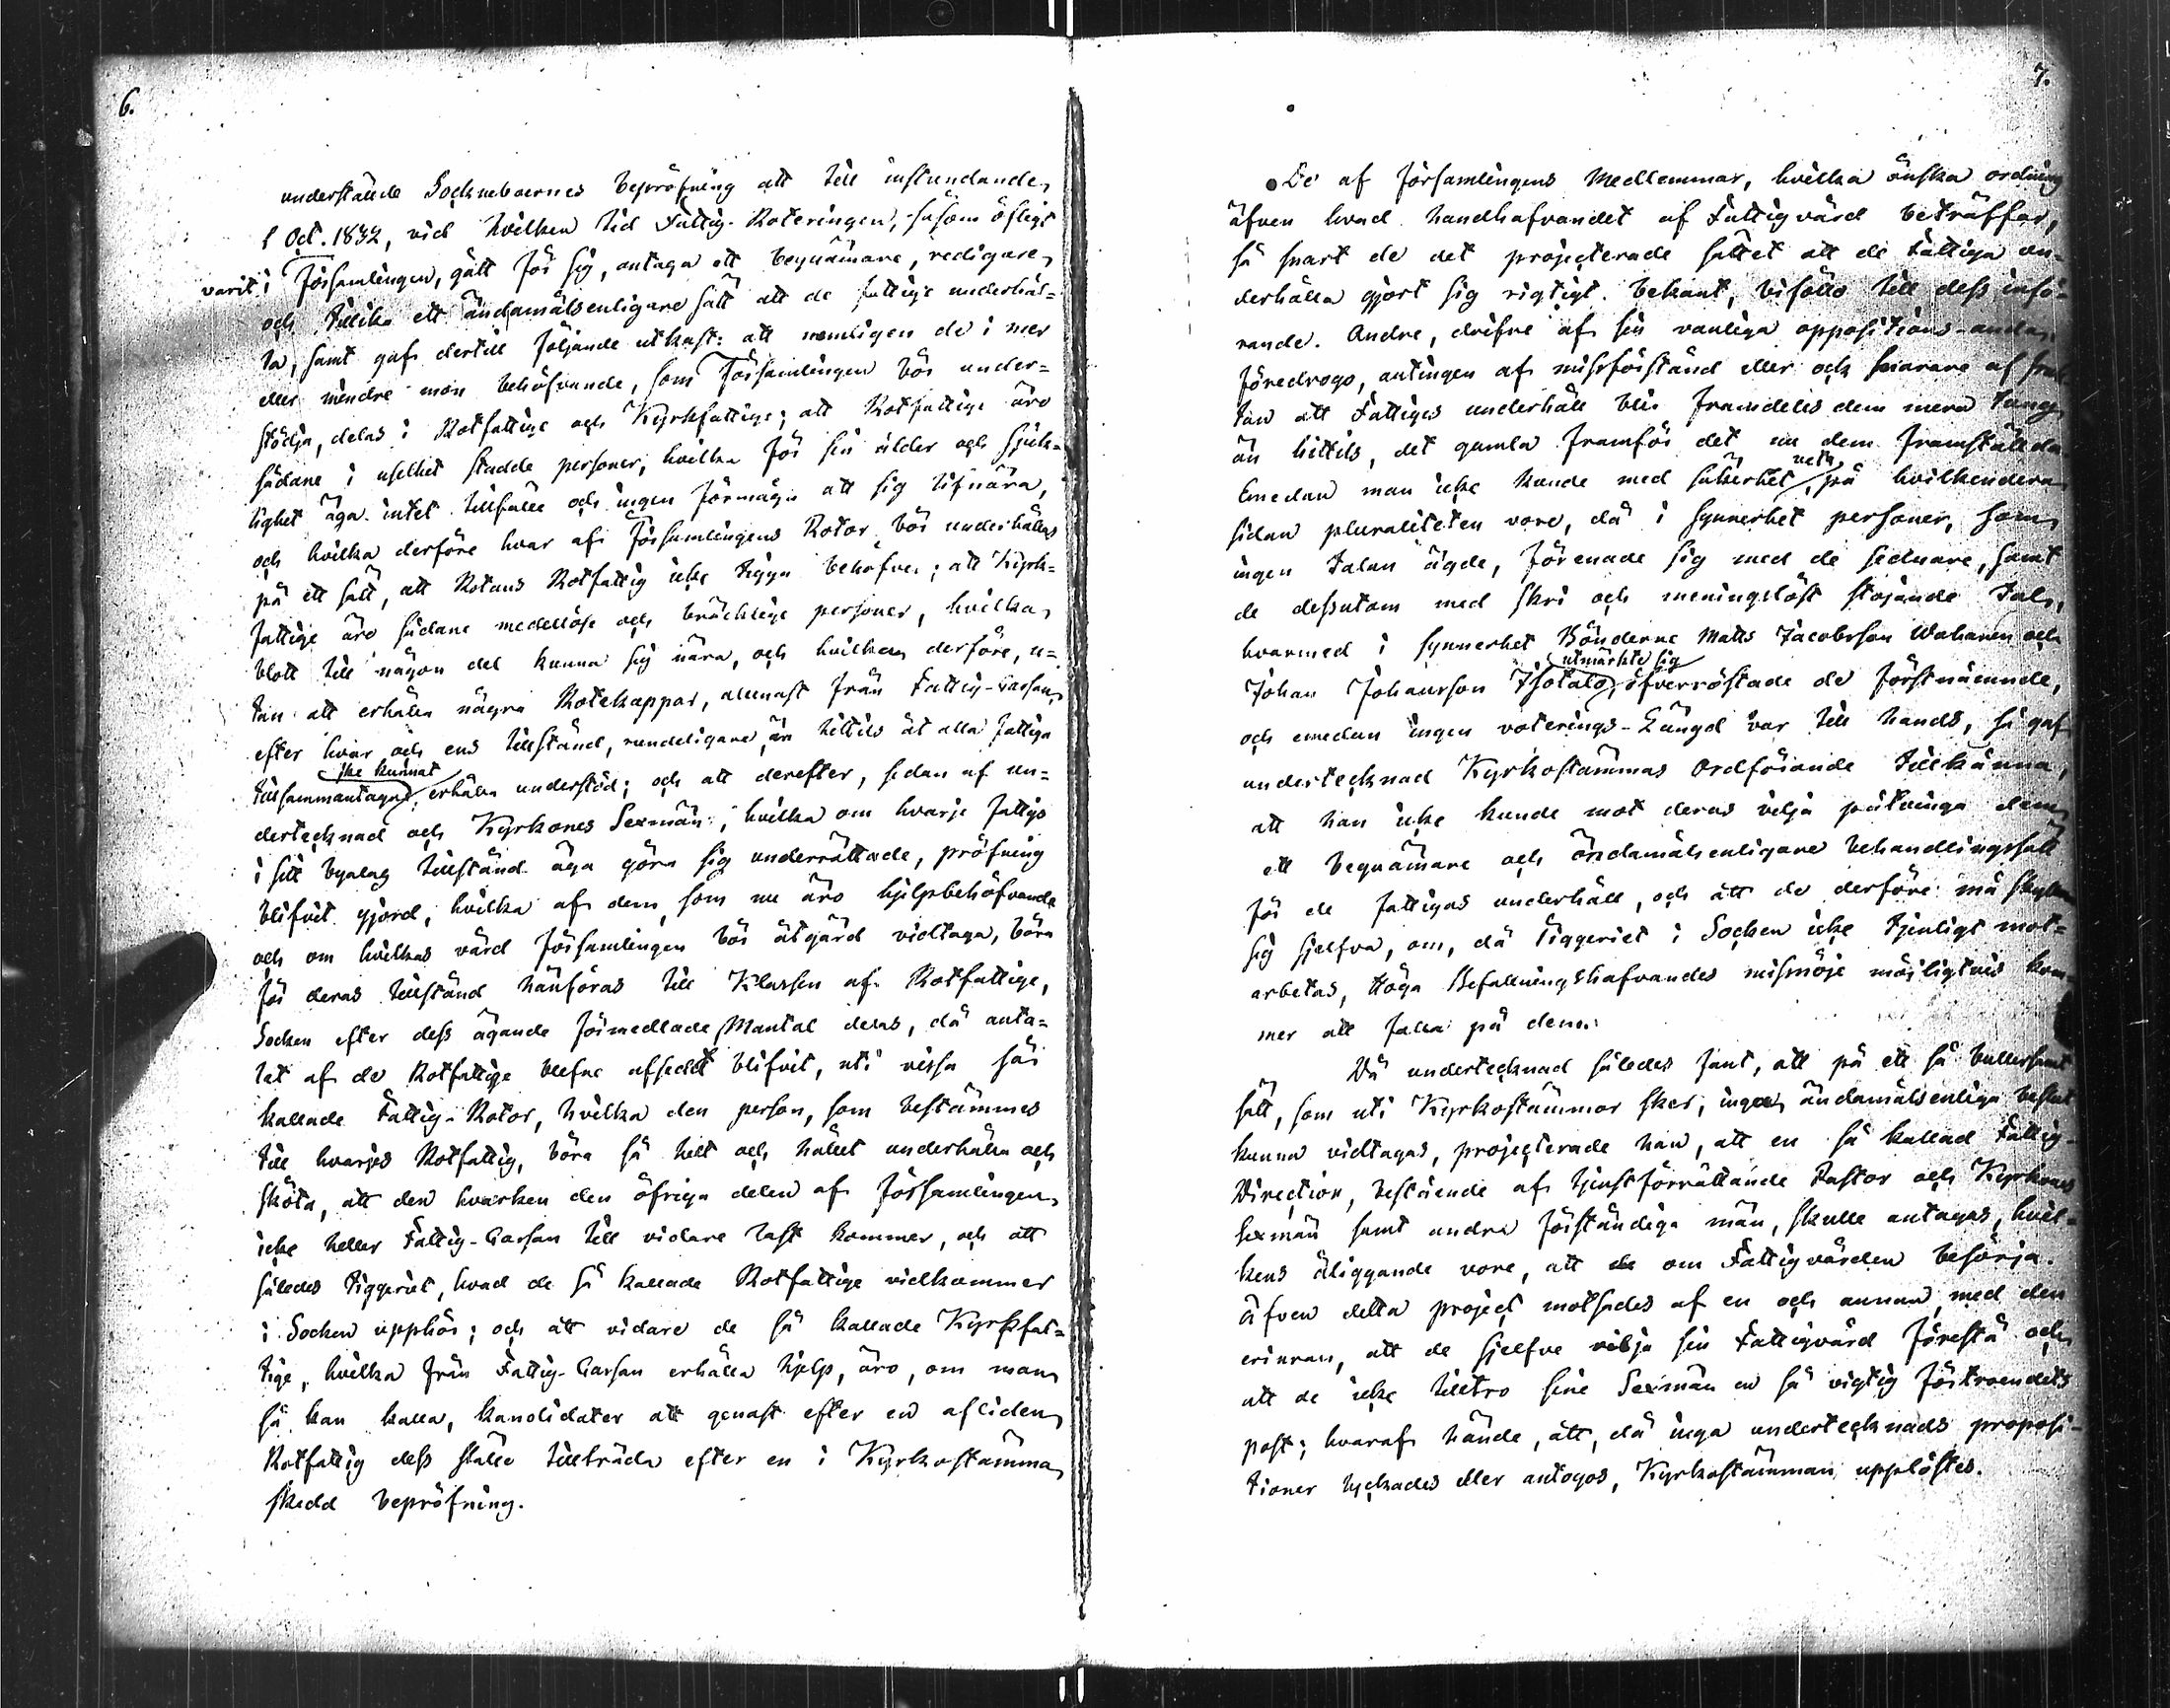 6.
understående Sockneboernes bepröfning att till instundande
1 Oct. 1832, vid hvilken tid Fattig-Roteringen, såsom öfligt
varit i Församlingen, gått för sig, antaga ett beqvämare, redigare
och tillika ett ändamålsenligare sätt att de fattige underhål-
la, samt gaf dertill följande utkast: att nemligen de i mer
eller mindre mon behöfvande, som Församlingen bör under-
stödja, delas i Rotfattige och Kyrkfattige; att Rotfattige äro
sådane i uselhet stadde personer, hvilka för sin ålder och sjuk-
lighet äga intet tillfälle och ingen förmåga att sig lifnära,
och hvilka derföre hvar af Församlingens Rotor bör underhållas
på ett sätt, att Rotans Rotfattig icke tigga behöfver; att Kyrk-
fattige äro sådane medellöse och bräcklige personer, hvilka
blott till någon del kunna sig nära, och hvilka derföre, u-
tan att erhålla några Rotekappar, allenast från Fattig-Cassan,
efter hvar och ens tillstånd, rundeligare, än hittils åt alla fattiga
ske kunnat
tillsammantagne, erhålla understöd; och att derefter, sedan af un-
dertecknad och Kyrkones Sexmän, hvilka om hvarje fattigs
i sitt byalag tillstånd äga göra sig underrättade, pröfning
blifvit gjord, hvilka af dem, som nu äro hjelpbehöfvande
och om hvilkas vård Församlingen bör åtgärd vidtaga, böra
för deras tillstånd hänföras till Klassen af Rotfattige,
Socken efter dess ägande förmedlade Mantal delas, då anta-
let af de Rotfattige blefve afsedt blifvit, uti vissa så
kallade Fattig-Rotor, hvilka den person, som bestämmes
till hvarjes Rotfattig, böra så helt och hållet underhålla och
sköta, att den hvarken den öfriga delen af Församlingen,
icke heller Fattig-Cassan till vidare last kommer, och att
således Tiggeriet, hvad de så kallade Rotfattige vidkommer
i Socken upphör; och att vidare de så kallade Kyrkfat-
tige, hvilka från Fattig-Cassan erhålla hjelp, äro, om man
så kan kalla, kandidater att genast efter en afliden
Rotfattig dess ställe tillträda efter en i Kyrkostämma
skedd bepröfning.
7.
De af Församlingens Medlemmar, hvilka önska ordning
äfven hvad handhafvandet af Fattigvård beträffar,
så snart de det projecterade sättet att de Fattiga un-
derhålla gjort sig rigtigt bekant, biföllo till dess infö-
rande. Andre, drifne af sin vanliga oppositions-anda,
föredrogo, antingen af missförstånd eller och snarare af fruk-
tan att Fattiges underhåll blir framdeles dem mera tung
än hittils, det gamla framför det nu dem framställda
Emedan man icke kunde med säkerhet veta, på hvilkendera
sidan pluraliteten vore, då i synnerhet personer, som
ingen talan ägde, förenade sig med de sednare, samt
de dessutom med skri och meningslöst stojande tal,
hvarmed i synnerhet Bönderne Matts Jacobsson Wahanen och
utmärkte sig
Johan Johansson Isotalo, öfverröstade de förstnämnde,
och emedan ingen voterings-Längd var till hands, så gaf
undertecknad Kyrkostämmas Ordförande tillkänna,
att han icke kunde mot deras vilja påtvinga dem
ett beqvämare och ändamålsenligare behandlingssätt
för de fattigas underhåll, och att de derföre må skylla
sig sjelfva, om, då Tiggeriet i Socken icke tjenligt mot-
arbetas, Höga Befallningshafvandes missnöje möjligtvis kom-
mer att falla på dem.
Då undertecknad således fant, att på ett så bullersamt
sätt, som uti Kyrkostämmor sker, inga ändamålsenliga beslut
kunna vidtagas, projecterade han, att en så kallad Fattig-
Direction, bestående af tjenstförrättande Pastor och Kyrkones
Sexmän samt andra förståndiga män, skulle antagas, hvil-
kens åliggande vore, att om Fattigvården besörja.
Äfven detta project motsades af en och annan, med den
erinran, att de sjelfve vilja sin Fattigvård förestå och
att de icke tilltro sine Sexmän en så vigtig förtroendets
post; hvaraf hände, att, då inga undertecknads proposi-
tioner lyckades eller antogos, Kyrkostämman upplöstes.